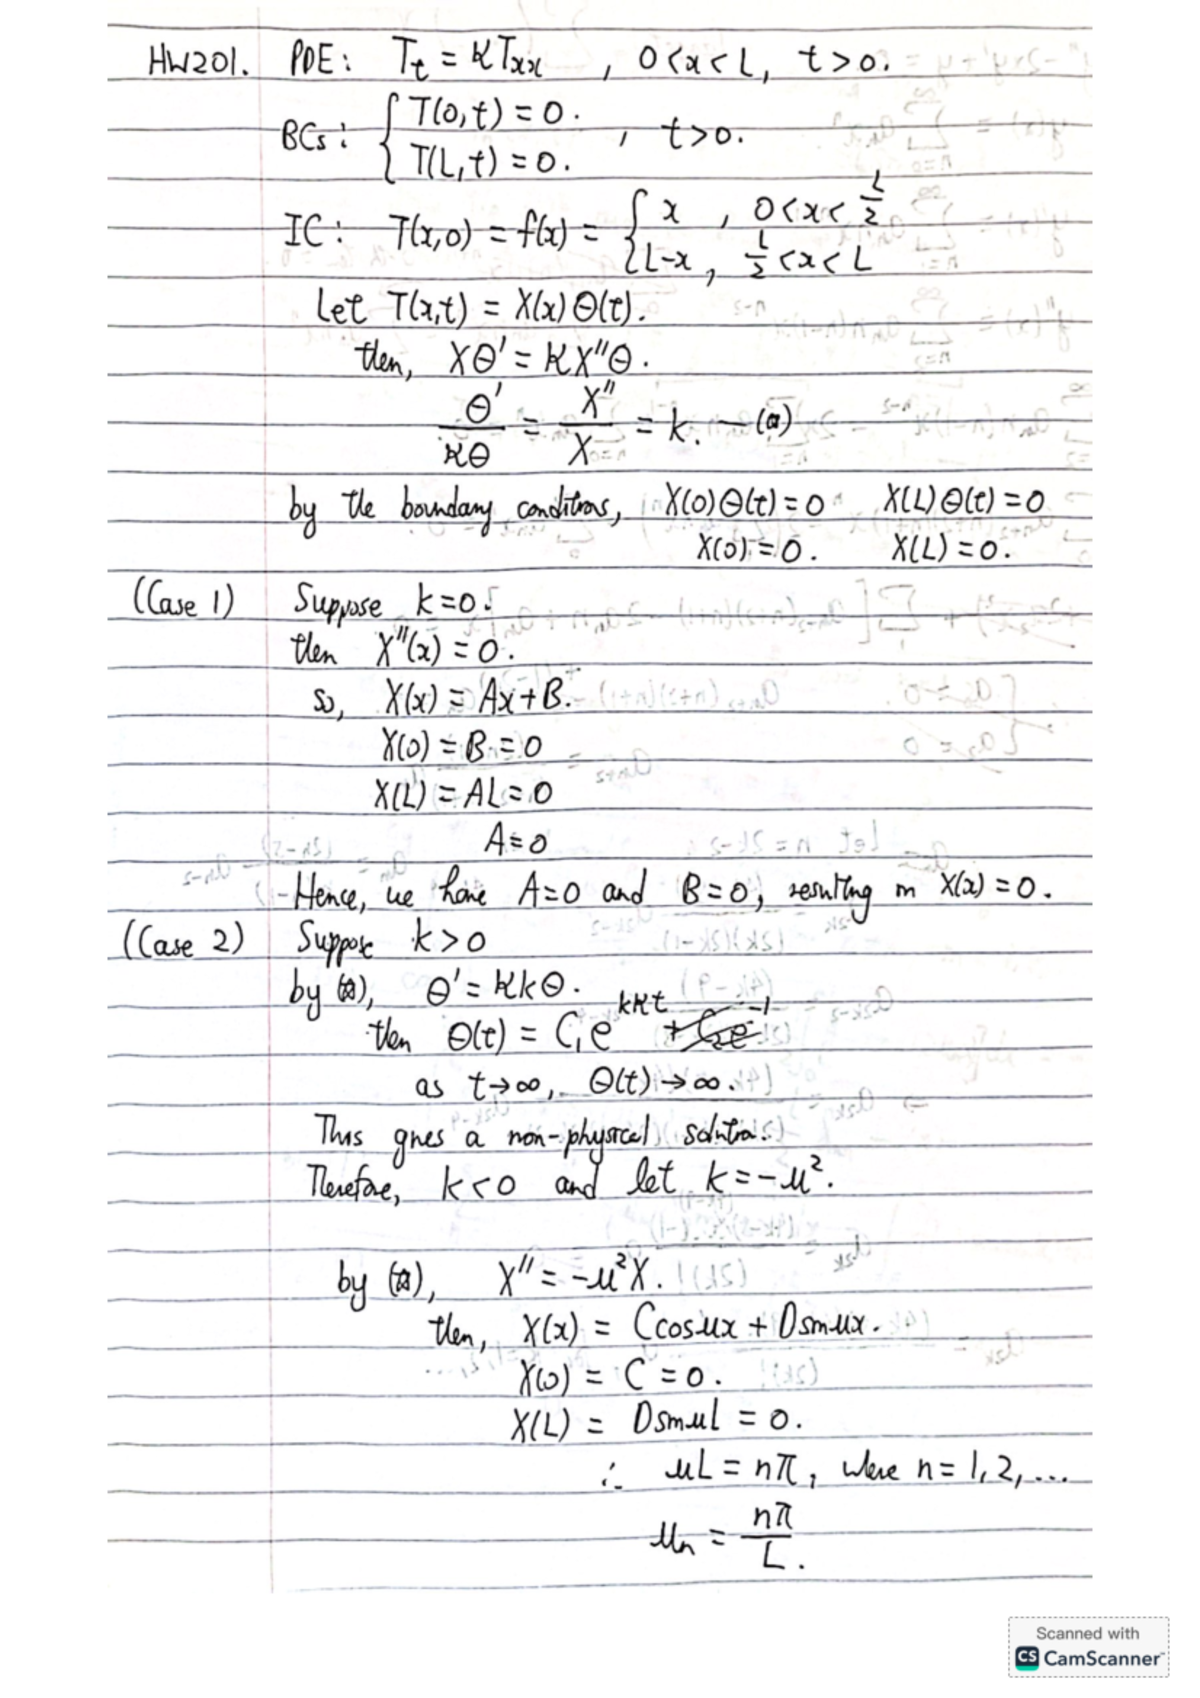 HW201. PDE: Tt = κTxx , 0<x<L, t>0.
BCs: { T(0,t) = 0.
T(L,t) = 0. , t>0.
IC: T(x,0) = f(x) = { x , 0<x<L/2
L-x , L/2<x<L
Let T(x,t) = X(x)Θ(t).
then, XΘ' = κX''Θ.
Θ'/κΘ = X''/X = k. —(☆)
by the boundary conditions, X(0)Θ(t)=0 X(L)Θ(t)=0
X(0)=0. X(L)=0.
(Case 1) Suppose k=0.
then X''(x)=0.
so, X(x) = Ax+B.
X(0) = B = 0
X(L) = AL = 0
A=0
Hence, we have A=0 and B=0, resulting in X(x)=0.
(Case 2) Suppose k>0
by (☆), Θ' = κkΘ.
then Θ(t) = C₁e^kκt
as t→∞, Θ(t)→∞.
This gives a non-physical solution.
Therefore, k<0 and let k=-μ².
by (☆), X'' = -μ²X.
then, X(x) = Ccosμx + Dsinμx.
X(0) = C = 0.
X(L) = DsinμL = 0.
∴ μL = nπ, where n=1,2,...
μn = nπ/L.
Scanned with
CS CamScanner